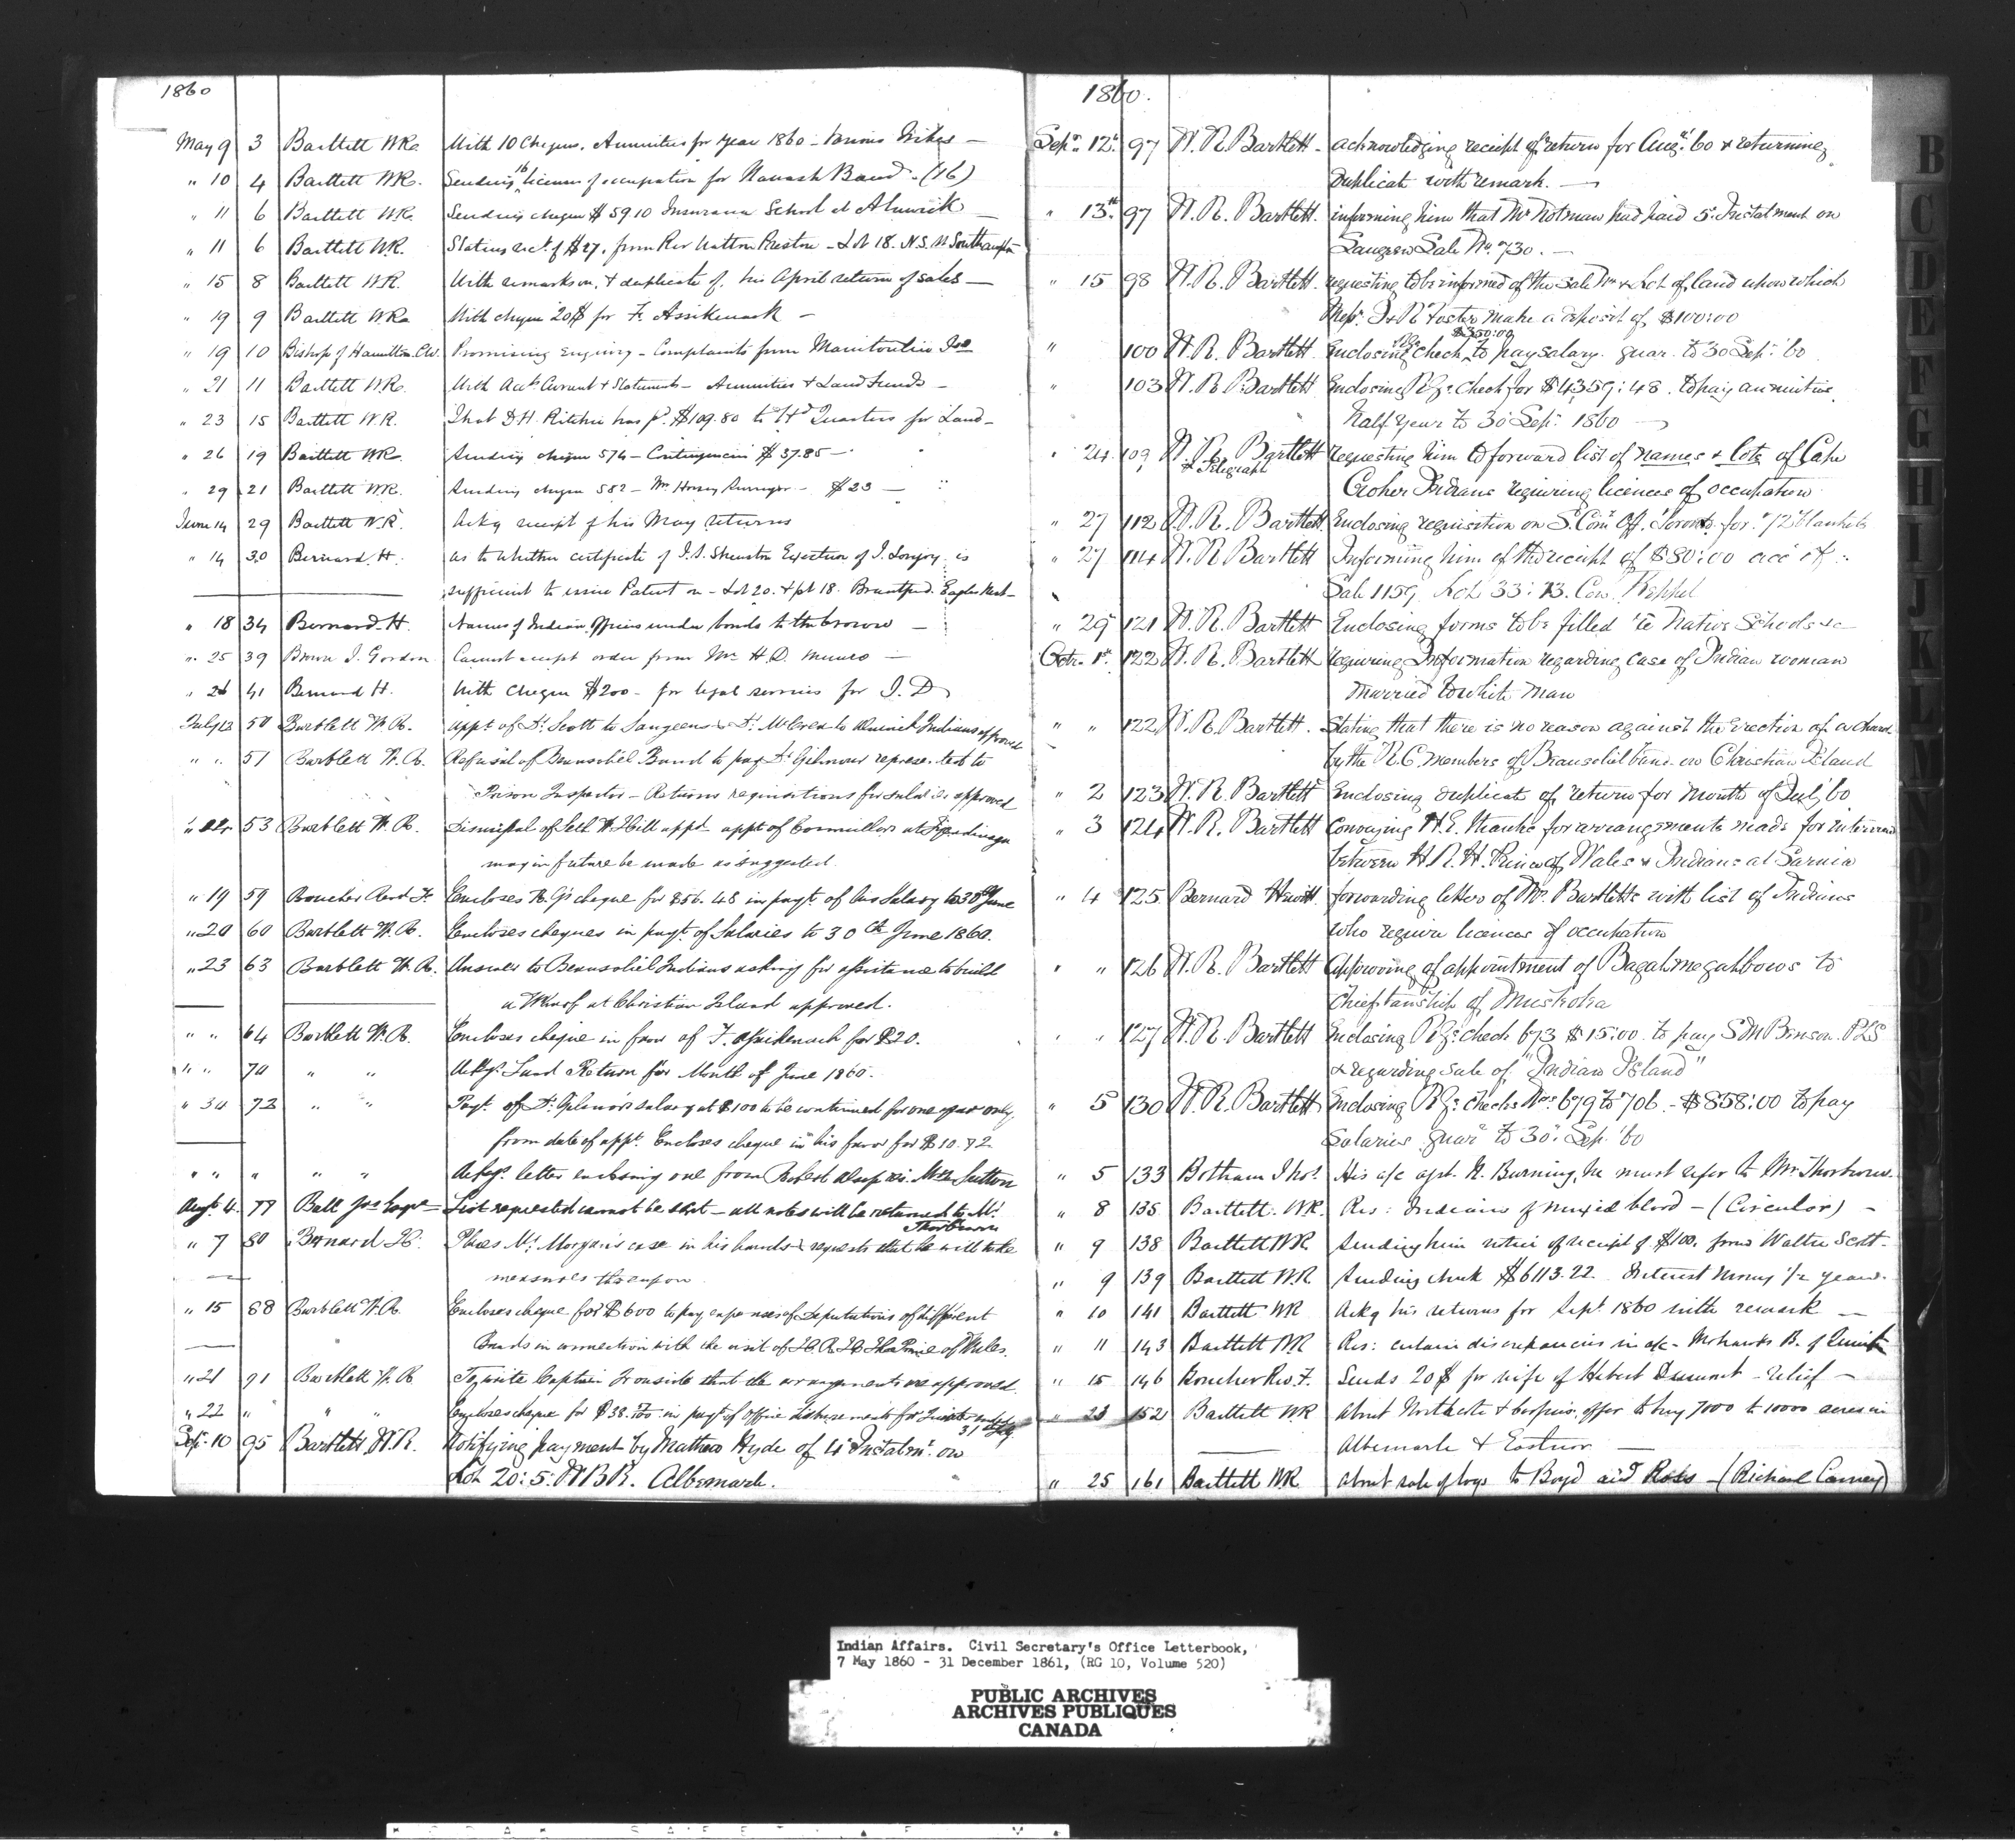 1860
May 9 3 Bartlett WR With 10 Cheques. Annuities for year 1860 - various Tribes -
" 10 4 Bartlett WR. Sending 16 licenses of occupation for Nawash Band - (16)
" 11 6 Bartlett WR. Sending cheque $59.10 Insurance School at Alnwick -
" 11 6 Bartlett WR. Stating rect. of $27. from Rev Hatton Preston - Lot 18. N.S. Southampton
" 15 8 Bartlett WR. With remarks on, & duplicate of, his April return of sales -
" 19 9 Bartlett WR With cheque 20$ for F. Assikenack -
" 19 10 Bishop of Hamilton C.W. Promising enquiry - Complaints from Manitoulin Isd
" 21 11 Bartlett W.R. With Acct. Current & Statements - Annuities & Land Funds -
" 23 15 Bartlett W.R. That D.H. Ritchie has pd. $109.80 to Hd Quarters for Land -
" 26 19 Bartlett WR. Sending cheque 574 - Contingencies $37.85 -
" 29 21 Bartlett WR. Sending cheque 582 - Mr Surveyor - $23 -
June 14 29 Bartlett W.R. Ackg receipt of his May returns
" 14 30 Bernard H. as to whether certificate of Execution of is
sufficient to issue Patent on - Lot 20. & pt 18. Brantford. Eagles Nest -
" 18 34 Bernard. H. Names of Indian Officers under bonds to the Crown -
" 25 39 Brown J. Gordon Cannot accept order from Mr H.D. Munro -
" 26 41 Bernard H. With cheque $200 - for legal services for I.D
July 13 50 Bartlett W.R. appt. of Dr. Scott to Saugeens & Dr. McCrea to Indians approved
" " 51 Bartlett W.R. Refusal of Beausoliel Band to pay Dr. Gilmour
Prison Inspector - Returns requisitions for salaries approved
" 53 Bartlett W.R. Dismissal of Seth W. Hill appd appt of
may in future be made as suggested
" 19 59 Boucher Revd F. Encloses R.G's cheque for $56.48 in payt. of his Salary to 30th June
" 20 60 Bartlett W.R. Encloses cheques in payt. of Salaries to 30th June 1860.
" 23 63 Bartlett W.R. Answer to Beausoliel Indians asking for assistance to build
a Wharf at Christian Island approved.
" " 64 Bartlett W.R. Encloses cheque in favor of F. Assikenack for $20.
" " 70 " " Ackgs Land Return for Month of June 1860.
" 30 72 " " Payt. of Dr. Gilmor's salary at $100 to be continued for one year only
from date of appt. Encloses cheque in his favor for $10.92
" " " " " Ackgs. letter enclosing one from Robert Alsop re: Mrs Sutton
Augt. 4. 77 Ball Jno Esqre - List requested cannot be sent - all notes will be returned to Mr.
Thorburn
" 7 80 Bernard H. Places Mr. Morgan's case in his hands & requests that he will take
measures thereupon
" 15 88 Bartlett W.R. Encloses cheque for $600 to pay expenses of Deputations of different
Bands in connection with the visit of H.R.H. The Prince of Wales.
" 21 91 Bartlett W.R To write Captain Ironside that the arrangements are approved
" 22 " " " Encloses cheque for $38. in payt. of Office disbursements for
Sepr. 10 95 Bartlett W.R. Notifying payment by Mathew Hyde of 4th Instalmt. on
Lot 20: 5: W B R. Albemarle.
1860.
Sepr. 12th. 97 W.R. Bartlett - acknowledging receipt of return for Augt. 60 & returning
Duplicate with remark. -
" 13th. 97 W.R. Bartlett. informing him that Mr Notman had paid 5th Instalment on
Saugeen Sale No. 730. -
" 15 98 W.R. Bartlett requesting to be informed of the Sale No & Lot of land upon which
Messrs. D & R Foster make a deposit of $100:00
" 100 W.R. Bartlett Enclosing check $350:00 to pay salary. quar. to 30 Sepr. '60
" 103 W.R. Bartlett Enclosing R.Gs. check for $4359:48. to pay annuities
Half Year to 30 Sepr. 1860
" 24. 109 W.R. Bartlett requesting him to forward list of names & lots of Cape
& Telegraph
Croker Indians requiring licences of occupation
" 27 112 W.R. Bartlett Enclosing requisition on S. Com Off. Toronto. for. 72 blankets
" 27 114 W.R Bartlett Informing him of the receipt of $80:00 acc of:
Sale 1159 Lot 33: 13. Con. Keppel
" 29 121 W.R. Bartlett Enclosing forms to be filled re Native Schools &c
Octr. 1st. 122 W.R. Bartlett requiring Information regarding case of Indian woman
married to white man
" " 122 W.R. Bartlett. Stating that there is no reason against the erection of a church
by the R.C. members of Beausoliel band on Christian Island
" 2 123 W.R. Bartlett Enclosing duplicate of return for month of July '60
" 3 124 W.R. Bartlett Conveying H.E. thanks for arrangements made for interview
between H.R.H. Prince of Wales & Indians at Sarnia
" 4 125 Bernard Hewitt. forwarding letter of Mr. Bartletts with list of Indians
who require licences of occupation
" " 126 W.R. Bartlett Approving of appointment of Bagahmegahbows to
Chieftanship of Muskoka
" " 127 W.R. Bartlett Enclosing R.Gs. check 673 $15:00 to pay S M Benson. PLS
& regarding sale of "Indian Island"
" 5 130 W.R. Bartlett Enclosing R.Gs: checks Nos: 679 to 706 - $858:00 to pay
Salaries quar to 30: Sep '60
" 5 133 Botham Thos. His a/c agst. N. Burning, he must refer to Mr Thorburn.
" 8 135 Bartlett. WR. Res: Indians of mixed blood - (Circular) -
" 9 138 Bartlett WR Sending him notice of receipt of $100. from Walter Scott -
" 9 139 Bartlett W.R. Sending check $6113.22. Interest Money 1/2 year.
" 10 141 Bartlett WR Ackg his returns for Sept. 1860 with remark -
" 11 143 Bartlett WR Res: certain discrepancies in a/c - Mohawks B. of Quinte
" 15 146 Boucher Rev. F. Sends 20$ for wife of Hibert Dumont - relief -
" 23 152 Bartlett WR about Northcote & offer to buy 7000 to 10000 acres in
Albemarle & Eastnor -
" 25 161 Bartlett WR about sale of logs to Boyd and Ross - (Richard Carney)
B
C
D
E
F
G
H
I
J
K
L
M
N
O
P
Indian Affairs. Civil Secretary's Office Letterbook,
7 May 1860 - 31 December 1861, (RG 10, Volume 520)
PUBLIC ARCHIVES
ARCHIVES PUBLIQUES
CANADA